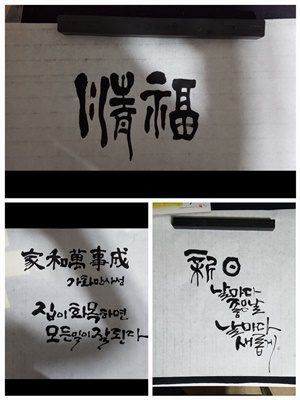 清福
家和萬事成
가화만사성
집이 화목하면
모든일이 잘된다
新日
날마다
좋은날
날마다
새롭게